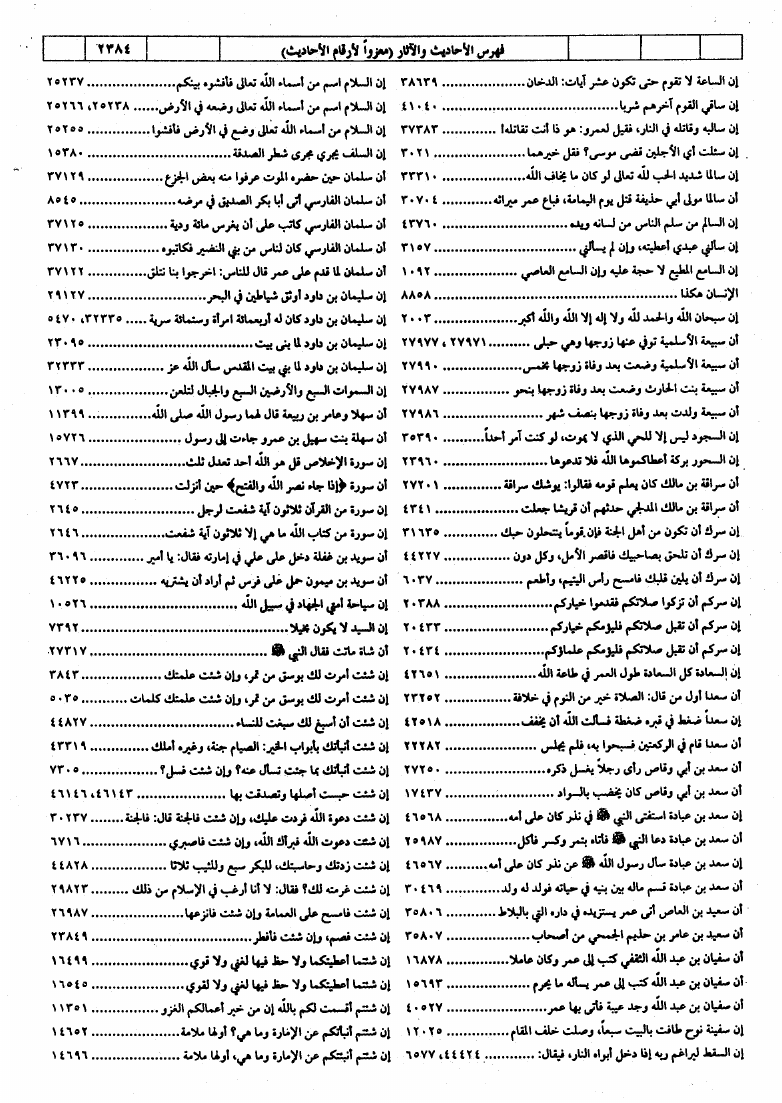 فهرس الأحاديث والآثار (معزواً لأرقام الأحاديث)
٢٣٨٤
إن الساعة لا تقوم حتى تكون عشر آيات: الدخان .................... ٣٨٦٣٩
إن ساقي القوم آخرهم شربا .................... ٤١٠٤٠
إن سالبه وقاتله في النار، فقيل لعمرو: هو ذا أنت تقاتله! ............ ٣٧٣٨٣
إن سئلت أي الأجلين قضى موسى؟ فقل خيرهما .................... ٣٠٢١
إن سالما شديد الحب لله تعالى لو كان ما يخاف الله .................... ٣٣٣١٠
أن سالما مولى أبي حذيفة قتل يوم اليمامة، فباع عمر ميراثه .......... ٣٠٧٠٤
إن السالم من سلم الناس من لسانه ويده .................... ٤٣٧٦٠
إن سألني عبدي أعطيته، وإن لم يسألني .................... ٣١٥٧
إن السامع المطيع لا حجة عليه وإن السامع العاصي .................... ١٠٩٢
الإنسان هكذا .................... ٨٨٥٨
إن سبحان الله والحمد لله ولا إله إلا الله والله أكبر .................... ٢٠٠٣
أن سبيعة الأسلمية توفي عنها زوجها وهي حبلى .......... ٢٧٩٧١، ٢٧٩٧٧
أن سبيعة الأسلمية وضعت بعد وفاة زوجها بخمس .................... ٢٧٩٩٠
أن سبيعة بنت الحارث وضعت بعد وفاة زوجها بنحو .................... ٢٧٩٨٧
أن سبيعة ولدت بعد وفاة زوجها بنصف شهر .................... ٢٧٩٨٦
إن السجود ليس إلا للحي الذي لا يموت، لو كنت آمر أحداً .......... ٣٥٣٩٠
إن السحور بركة أعطاكموها الله فلا تدعوها .................... ٢٣٩٦٠
أن سراقة بن مالك كان يعلم قومه فقالوا: يوشك سراقة ............ ٢٧٢٠١
أن سراقة بن مالك المدلجي حدثهم أن قريشا جعلت .................... ٤٣٤١
إن سرك أن تكون من أهل الجنة فإن قوماً ينتحلون حبك ............ ٣١٦٣٥
إن سرك أن تلحق بصاحبيك فاقصر الأمل، وكل دون .................... ٤٤٢٢٧
إن سرك أن يلين قلبك فامسح رأس اليتيم، وأطعم .................... ٦٠٣٧
إن سركم أن تزكوا صلاتكم فقدموا خياركم .................... ٢٠٣٨٨
إن سركم أن تقبل صلاتكم فليؤمكم خياركم .................... ٢٠٤٣٣
إن سركم أن تقبل صلاتكم فليؤمكم علماؤكم .................... ٢٠٤٣٤
إن السعادة كل السعادة طول العمر في طاعة الله .................... ٤٢٦٥١
أن سعدا أول من قال: الصلاة خير من النوم في خلافة .................... ٢٣٢٥٢
إن سعداً ضغط في قبره ضغطة فسألت الله أن يخفف .................... ٤٢٥١٨
أن سعدا قام في الركعتين فسبحوا به، فلم يجلس .................... ٢٢٢٨٢
أن سعد بن أبي وقاص رأى رجلاً يغسل ذكره .................... ٢٧٢٥٠
أن سعد بن أبي وقاص كان يخضب بالسواد .................... ١٧٤٣٧
أن سعد بن عبادة استفتى النبي ﷺ في نذر كان على أمه ............ ٤٦٥٦٨
أن سعد بن عبادة دعا النبي ﷺ فأتاه بتمر وكسر فأكل ............ ٢٥٩٨٧
إن سعد بن عبادة سأل رسول الله ﷺ عن نذر كان على أمه .......... ٤٦٥٦٧
أن سعد بن عبادة قسم ماله بين بنيه في حياته فولد له ولد ............ ٣٠٤٦٩
أن سعيد بن العاص أتى عمر يستزيده في داره التي بالبلاط ............ ٣٥٨٠٦
أن سعيد بن عامر بن حذيم الجمحي من أصحاب .................... ٣٥٨٠٧
أن سفيان بن عبد الله الثقفي كتب إلى عمر وكان عاملا ............ ١٦٨٧٨
أن سفيان بن عبد الله كتب إلى عمر يسأله ما يحرم .................... ١٥٦٩٣
أن سفيان بن عبد الله وجد عيبة فأتى بها عمر .................... ٤٠٥٢٧
إن سفينة نوح طافت بالبيت سبعاً، وصلت خلف المقام ............ ١٢٠٢٥
إن السقط ليراغم ربه إذا دخل أبواه النار، فيقال: ............ ٤٤٤٢٤، ٦٥٧٧
إن السلام اسم من أسماء الله تعالى فأفشوه بينكم .................... ٢٥٢٣٧
إن السلام اسم من أسماء الله تعالى وضعه في الأرض ...... ٢٥٢٣٨، ٢٥٢٦٦
إن السلام من أسماء الله تعالى وضع في الأرض فأفشوا ............ ٢٥٢٥٥
إن السلف يجري مجرى شطر الصدقة .................... ١٥٣٨٠
أن سلمان حين حضره الموت عرفوا منه بعض الجزع ............ ٣٧١٢٩
أن سلمان الفارسي أتى أبا بكر الصديق في مرضه .................... ٨٥٤٥
أن سلمان الفارسي كاتب على أن يغرس مائة ودية .................... ٣٧١٢٥
أن سلمان الفارسي كان لناس من بني النضير فكاتبوه ............ ٣٧١٣٠
أن سلمان لما قدم على عمر قال للناس: اخرجوا بنا نتلق ............ ٣٧١٢٢
إن سليمان بن داود أوثق شياطين في البحر .................... ٢٩١٢٧
إن سليمان بن داود كان له أربعمائة امرأة وستمائة سرية ..... ٣٢٣٣٥، ٥٤٧٠
إن سليمان بن داود لما بنى بيت .................... ٢٣٠٩٥
إن سليمان بن داود لما بني بيت المقدس سأل الله عز ............ ٣٢٣٣٣
إن السموات السبع والأرضين السبع والجبال لتلعن ............ ١٣٠٠٥
أن سهلا وعامر بن ربيعة قال لهما رسول الله صلى الله ............ ١١٣٩٩
أن سهلة بنت سهيل بن عمرو جاءت إلى رسول .................... ١٥٧٢٦
إن سورة الإخلاص قل هو الله أحد تعدل ثلث .................... ٢٦٦٧
أن سورة ﴿إذا جاء نصر الله والفتح﴾ حين أنزلت .................... ٤٧٢٣
إن سورة من القرآن ثلاثون آية شفعت لرجل .................... ٢٦٤٥
إن سورة من كتاب الله ما هي إلا ثلاثون آية شفعت ............ ٢٦٤٦
أن سويد بن غفلة دخل على علي في إمارته فقال: يا أمير .......... ٣٦٠٩٦
أن سويد بن ميمون حمل على فرس ثم أراد أن يشتريه ............ ٤٦٢٢٥
إن سياحة أمتي الجهاد في سبيل الله .................... ١٠٥٢٦
إن السيد لا يكون بخيلا .................... ٧٣٩٢
أن شاة ماتت فقال النبي ﷺ .................... ٢٧٣١٧
إن شئت أمرت لك بوسق من تمر، وإن شئت علمتك ............ ٣٨٤٣
إن شئت أمرت لك بوسق من تمر، وإن شئت علمتك كلمات .......... ٥٠٣٥
إن شئت أن أسبغ لك سبغت للنساء .................... ٤٤٨٢٧
إن شئت أنبأتك بأبواب الخير: الصيام جنة، وغيره أملك .......... ٤٣٣١٩
إن شئت أنبأتك بما جئت تسأل عنه؟ وإن شئت فسل؟ ............ ٧٣٠٥
إن شئت حبست أصلها وتصدقت بها ............ ٤٦١٤٣، ٤٦١٤٦
إن شئت دعوة الله فردت عليك، وإن شئت فالجنة قال: فالجنة ...... ٣٠٢٣٧
إن شئت دعوت الله فبرأك الله، وإن شئت فاصبري .................... ٦٧١٦
إن شئت زدتك وحاسبتك، للبكر سبع وللثيب ثلاثا ............ ٤٤٨٢٨
إن شئت غرمته لك؟ فقال: لا أنا أرغب في الإسلام من ذلك .......... ٢٩٨٢٣
إن شئت فامسح على العمامة وإن شئت فانزعها .................... ٢٦٩٨٧
إن شئت فصم، وإن شئت فأفطر .................... ٢٣٨٤٩
إن شئتما أعطيتكما ولا حظ فيها لغني ولا قوي .................... ١٦٤٩٩
إن شئتما أعطيتكما ولا حظ فيها لغني ولا لقوي .................... ١٦٥٤٥
إن شئتم أقسمت لكم بالله إن من خير أعمالكم الغزو ............ ١١٣٥١
إن شئتم أنبأتكم عن الإمارة وما هي؟ أولها ملامة ............ ١٤٦٥٢
إن شئتم أنبئتكم عن الإمارة وما هي، أولها ملامة ............ ١٤٦٩٦